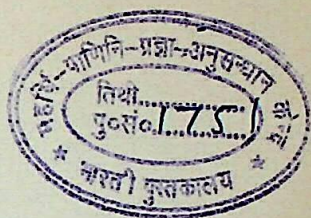 महर्षि-पाणिनि-प्रज्ञा-अनुसन्धान केन्द्र
तिथी..............
पु०सं० 1751
* भारती पुस्तकालय *